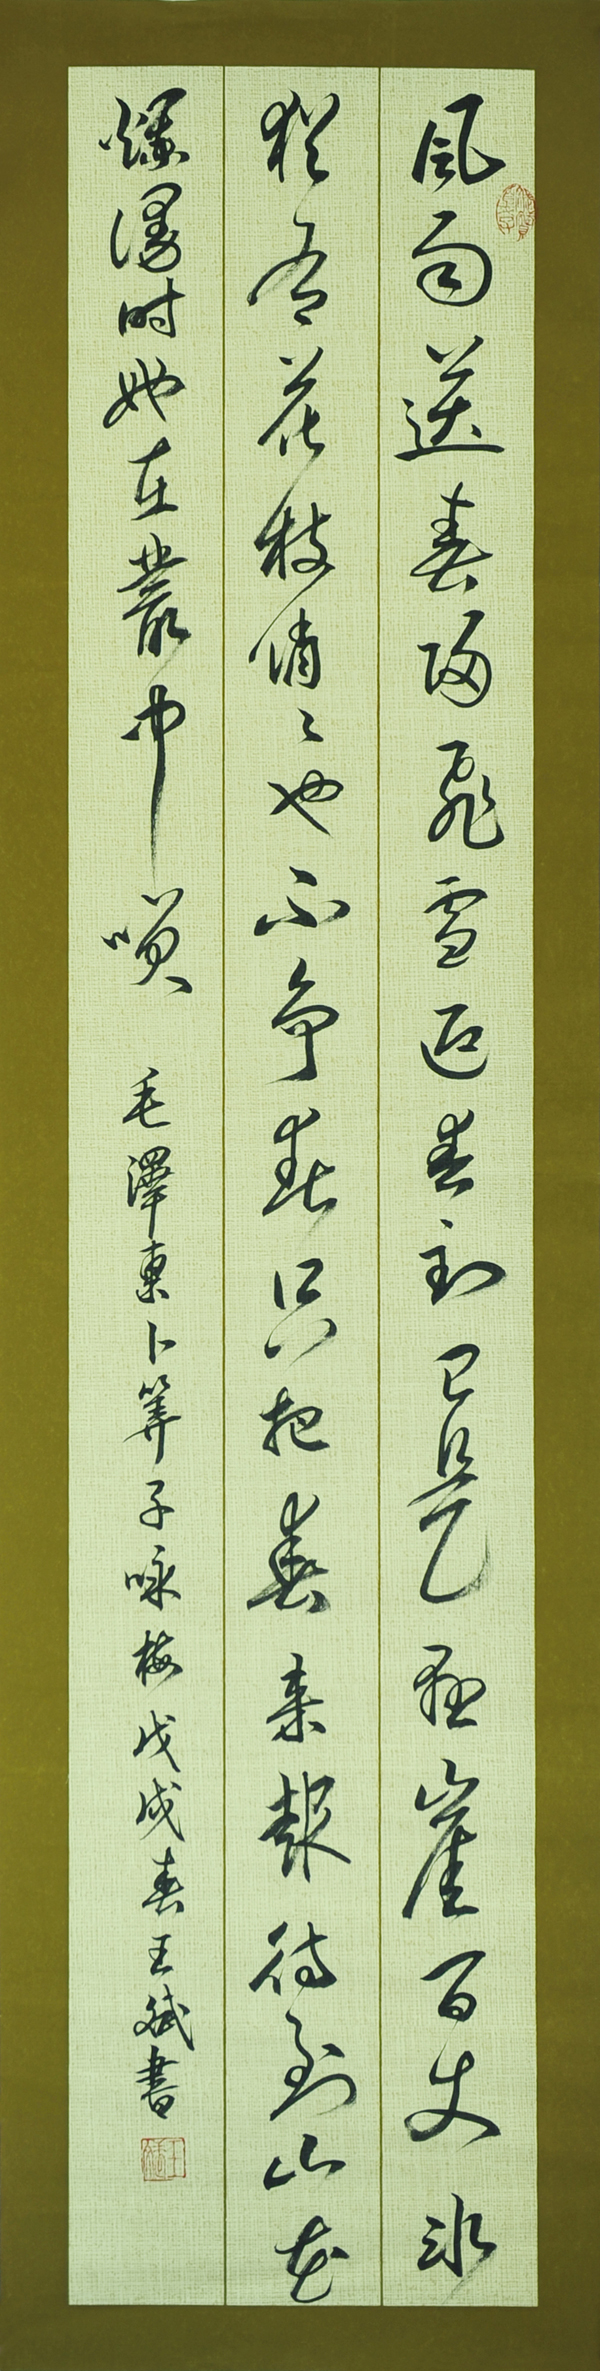 風雨送春歸飛雪迎春到已是懸崖百丈冰
猶有花枝俏〻也不争春只把春來報待到山花
爛漫时她在叢中咲
毛澤東卜筭子咏梅戊戌春王斌書